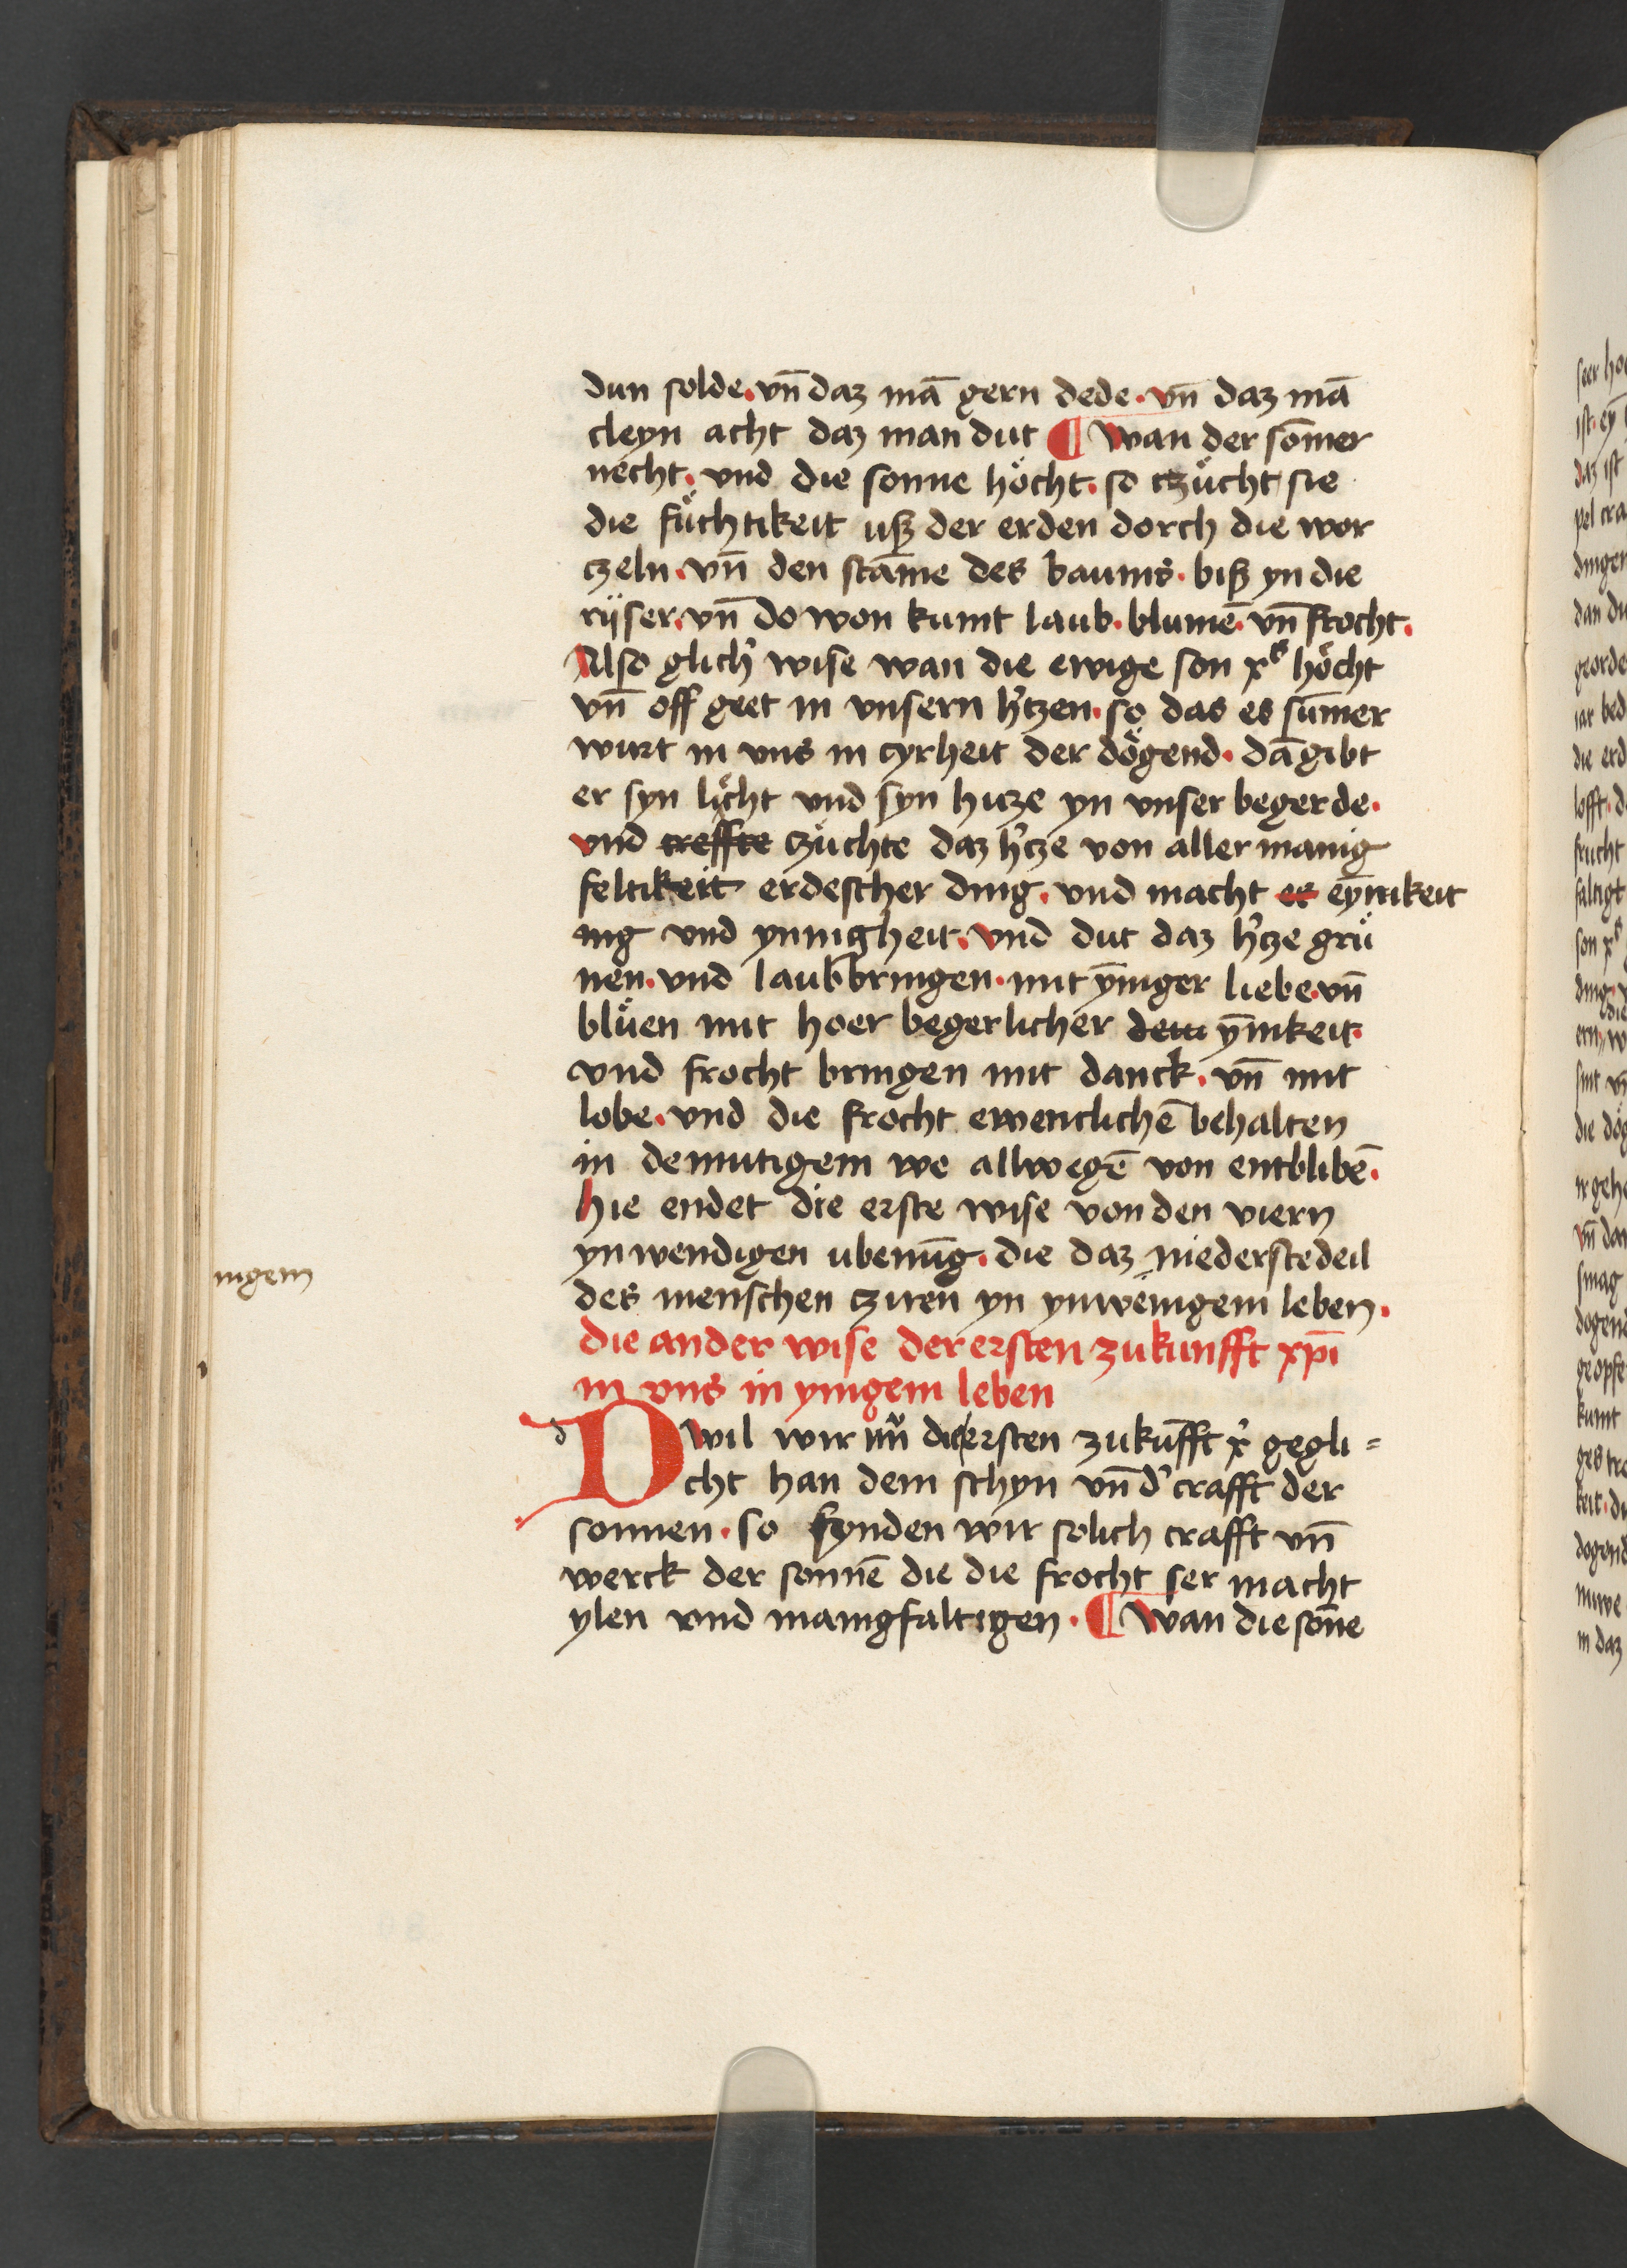 dun solde. vn̄ daz mā gern dede. vn̄ daz mā
cleyn acht daz man dut ¶ wan der som̄er
necht. vnd die sonne hoͤcht. so czuͤcht sie
die fuͤchtikeit uß der erden dorch die wor
czeln. vn̄ den stam̄e des baums. biß yn die
rijser. vn̄ do won kumt laub. blumē. vn̄ frocht.
Also glich' wise wan die ewige son xꝰ hoͤcht
vn̄ off geet in vnsern h'tzen. so das es sum̄er
wirt in vns in cyrheit der doͤgend. dā gibt
er syn liͤcht vnd syn hicze yn vnser begerde.
vnd treffte czuͤchte daz h'cze von aller manig
feltikeit erdescher ding. vnd macht et eyn̄ikeit
ing vnd ynnigheit. vnd dut daz h'cze gruͤ
nen. vnd laub bringen. mit yn̄iger liebe. vn̄
bluͤen mit hoer begerlicher demi yn̄ikeit.
vnd frocht bringen mit danck. vn̄ mit
lobe. vnd die frocht ewenclichē behalten
in demutigem we allwegē von entblibē.
hie endet die erste wise von den viern
ynwendigen ubenūg. die daz niederste deil
des menschen cziren yn ynwenigem leben.
nigem
die ander wise der ersten zukunfft xp̄i
in vns in ynigem leben
D wil wir nu̅ die ersten zukūfft x' gegli=
cht han dem schyn vn̄ d' crafft der
sonnen. so fynden wir solich crafft vn̄
werck der sonnē die die frocht ser macht
ylen vnd manigfaltigen. ¶ wan die son̄e